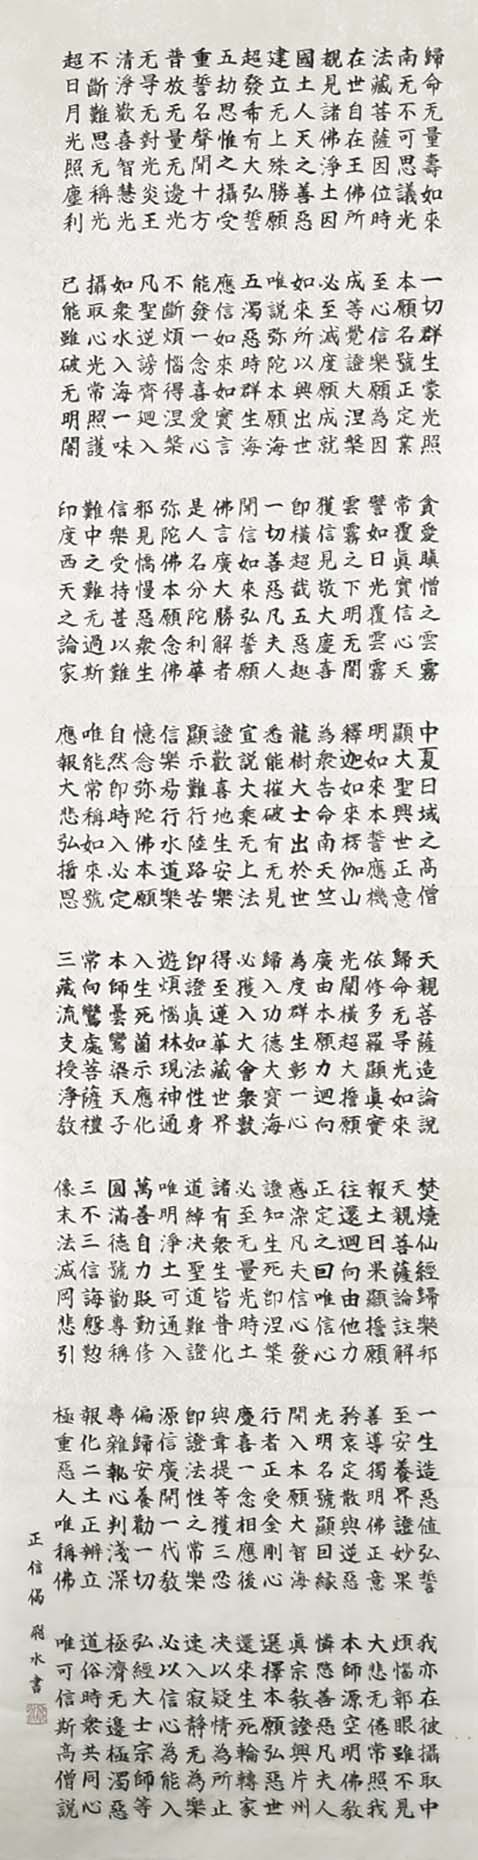 歸命无量壽如來
南无不可思議光
法藏菩薩因位時
在世自在王佛所
覩見諸佛淨土因
國土人天之善惡
建立无上殊勝願
超發希有大弘誓
五劫思惟之攝受
重誓名聲聞十方
普放无量无邊光
无㝵无對光炎王
清淨歡喜智慧光
不斷難思无稱光
超日月光照塵刹
一切群生蒙光照
本願名號正定業
至心信樂願為因
成等覺證大涅槃
必至滅度願成就
如來所以興出世
唯説弥陀本願海
五濁惡時群生海
應信如來如實言
能發一念喜愛心
不斷煩惱得涅槃
凡聖逆謗齊迴入
如衆水入海一味
攝取心光常照護
已能雖破无明闇
貪愛瞋憎之雲霧
常覆眞實信心天
譬如日光覆雲霧
雲霧之下明无闇
獲信見敬大慶喜
即橫超截五惡趣
一切善惡凡夫人
聞信如來弘誓願
佛言廣大勝解者
是人名分陀利華
弥陀佛本願念佛
邪見憍慢惡衆生
信樂受持甚以難
難中之難无過斯
印度西天之論家
中夏日域之高僧
顯大聖興世正意
明如來本誓應機
釋迦如來楞伽山
為衆告命南天竺
龍樹大士出於世
悉能摧破有无見
宣説大乘无上法
證歡喜地生安樂
顯示難行陸路苦
信樂易行水道樂
憶念弥陀佛本願
自然即時入必定
唯能常稱如來號
應報大悲弘誓恩
天親菩薩造論說
歸命无㝵光如來
依修多羅顯眞實
光闡橫超大誓願
廣由本願力迴向
為度群生彰一心
歸入功德大寳海
必獲入大會衆數
得至蓮華藏世界
即證眞如法性身
遊煩惱林現神通
入生死薗示應化
本師曇鸞梁天子
常向鸞處菩薩禮
三藏流支授淨教
焚燒仙經歸樂邦
天親菩薩論註解
報土因果顯誓願
往還迴向由他力
正定之因唯信心
惑染凡夫信心發
證知生死即涅槃
必至无量光明土
諸有衆生皆普化
道綽決聖道難證
唯明淨土可通入
萬善自力貶勤修
圓滿德號勸專稱
三不三信誨慇懃
像末法滅同悲引
一生造惡値弘誓
至安養界證妙果
善導獨明佛正意
矜哀定散與逆惡
光明名號顯因縁
開入本願大智海
行者正受金剛心
慶喜一念相應後
與韋提等獲三忍
即證法性之常樂
源信廣開一代教
偏歸安養勸一切
專雜執心判淺深
報化二土正辨立
極重惡人唯稱佛
我亦在彼攝取中
煩惱鄣眼雖不見
大悲无倦常照我
本師源空明佛教
憐愍善惡凡夫人
眞宗教證興片州
選擇本願弘惡世
還來生死輪轉家
決以疑情為所止
速入寂靜无為樂
必以信心為能入
弘經大士宗師等
極濟无邊極濁惡
道俗時衆共同心
唯可信斯高僧説
正信偈
水書